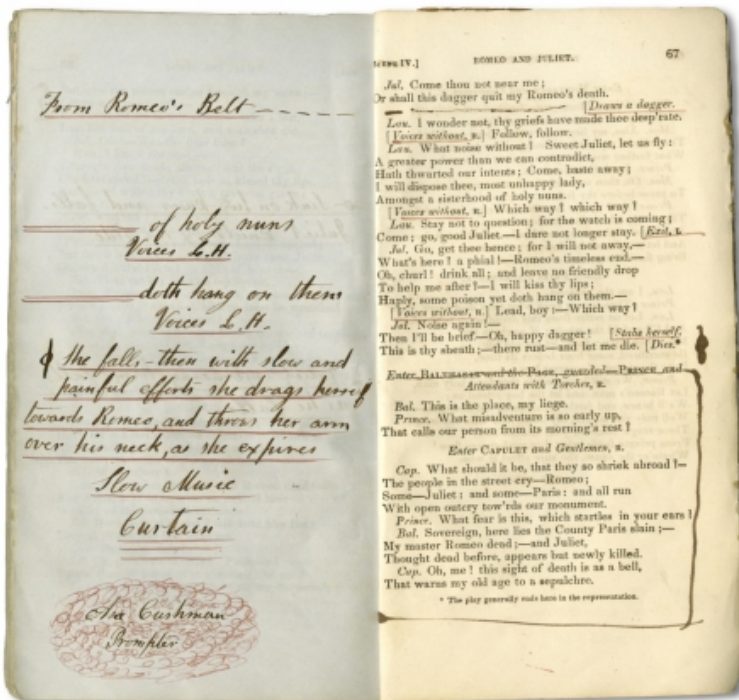 From Romeo's Belt
of holy nuns
Voices L.H.
doth hang on them
Voices L.H.
She falls – then with slow and
painful efforts she drags herself
towards Romeo, and throws her arm
over his neck, as she expires
Slow Music
Curtain
Asa Cushman
Prompter
SCENE IV.] ROMEO AND JULIET. 67
Jul. Come thou not near me;
Or shall this dagger quit my Romeo's death.
[Draws a dagger.
Lau. I wonder not, thy griefs have made thee desp'rate.
[Voices without, R.] Follow, follow.
Lau. What noise without? Sweet Juliet, let us fly:
A greater power than we can contradict,
Hath thwarted our intents; Come, haste away;
I will dispose thee, most unhappy lady,
Amongst a sisterhood of holy nuns.
[Voices without, R.] Which way? which way?
Lau. Stay not to question; for the watch is coming;
Come; go, good Juliet.—I dare not longer stay. [Exit, L.
Jul. Go, get thee hence; for I will not away.—
What's here! a phial!—Romeo's timeless end.—
Oh, churl! drink all; and leave no friendly drop
To help me after?—I will kiss thy lips;
Haply, some poison yet doth hang on them.—
[Voices without, R.] Lead, boy:—Which way?
Jul. Noise again!—
Then I'll be brief—Oh, happy dagger! [Stabs herself.
This is thy sheath;—there rust—and let me die. [Dies.*
Enter BALTHASAR and the PAGE, guarded—PRINCE and
Attendants with Torches, R.
Bal. This is the place, my liege.
Prince. What misadventure is so early up,
That calls our person from its morning's rest?
Enter CAPULET and Gentlemen, R.
Cap. What should it be, that they so shriek abroad?—
The people in the street cry—Romeo;
Some—Juliet: and some—Paris: and all run
With open outcry tow'rds our monument.
Prince. What fear is this, which startles in your ears?
Bal. Sovereign, here lies the County Paris slain;—
My master Romeo dead;—and Juliet,
Thought dead before, appears but newly killed.
Cap. Oh, me! this sight of death is as a bell,
That warns my old age to a sepulchre.
* The play generally ends here in the representation.